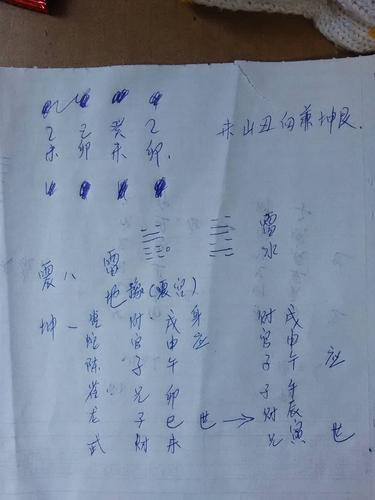 乙 己 癸 乙
未 卯 未 卯.
未山丑向兼坤艮.
雷
水
震八 雷
地豫(震宫)
坤一
财戌身 财戌
蛇 官申应 官申
陈 子午 子午应
雀 兄卯 子午
龙 子巳世→财辰
武 财未 兄寅世